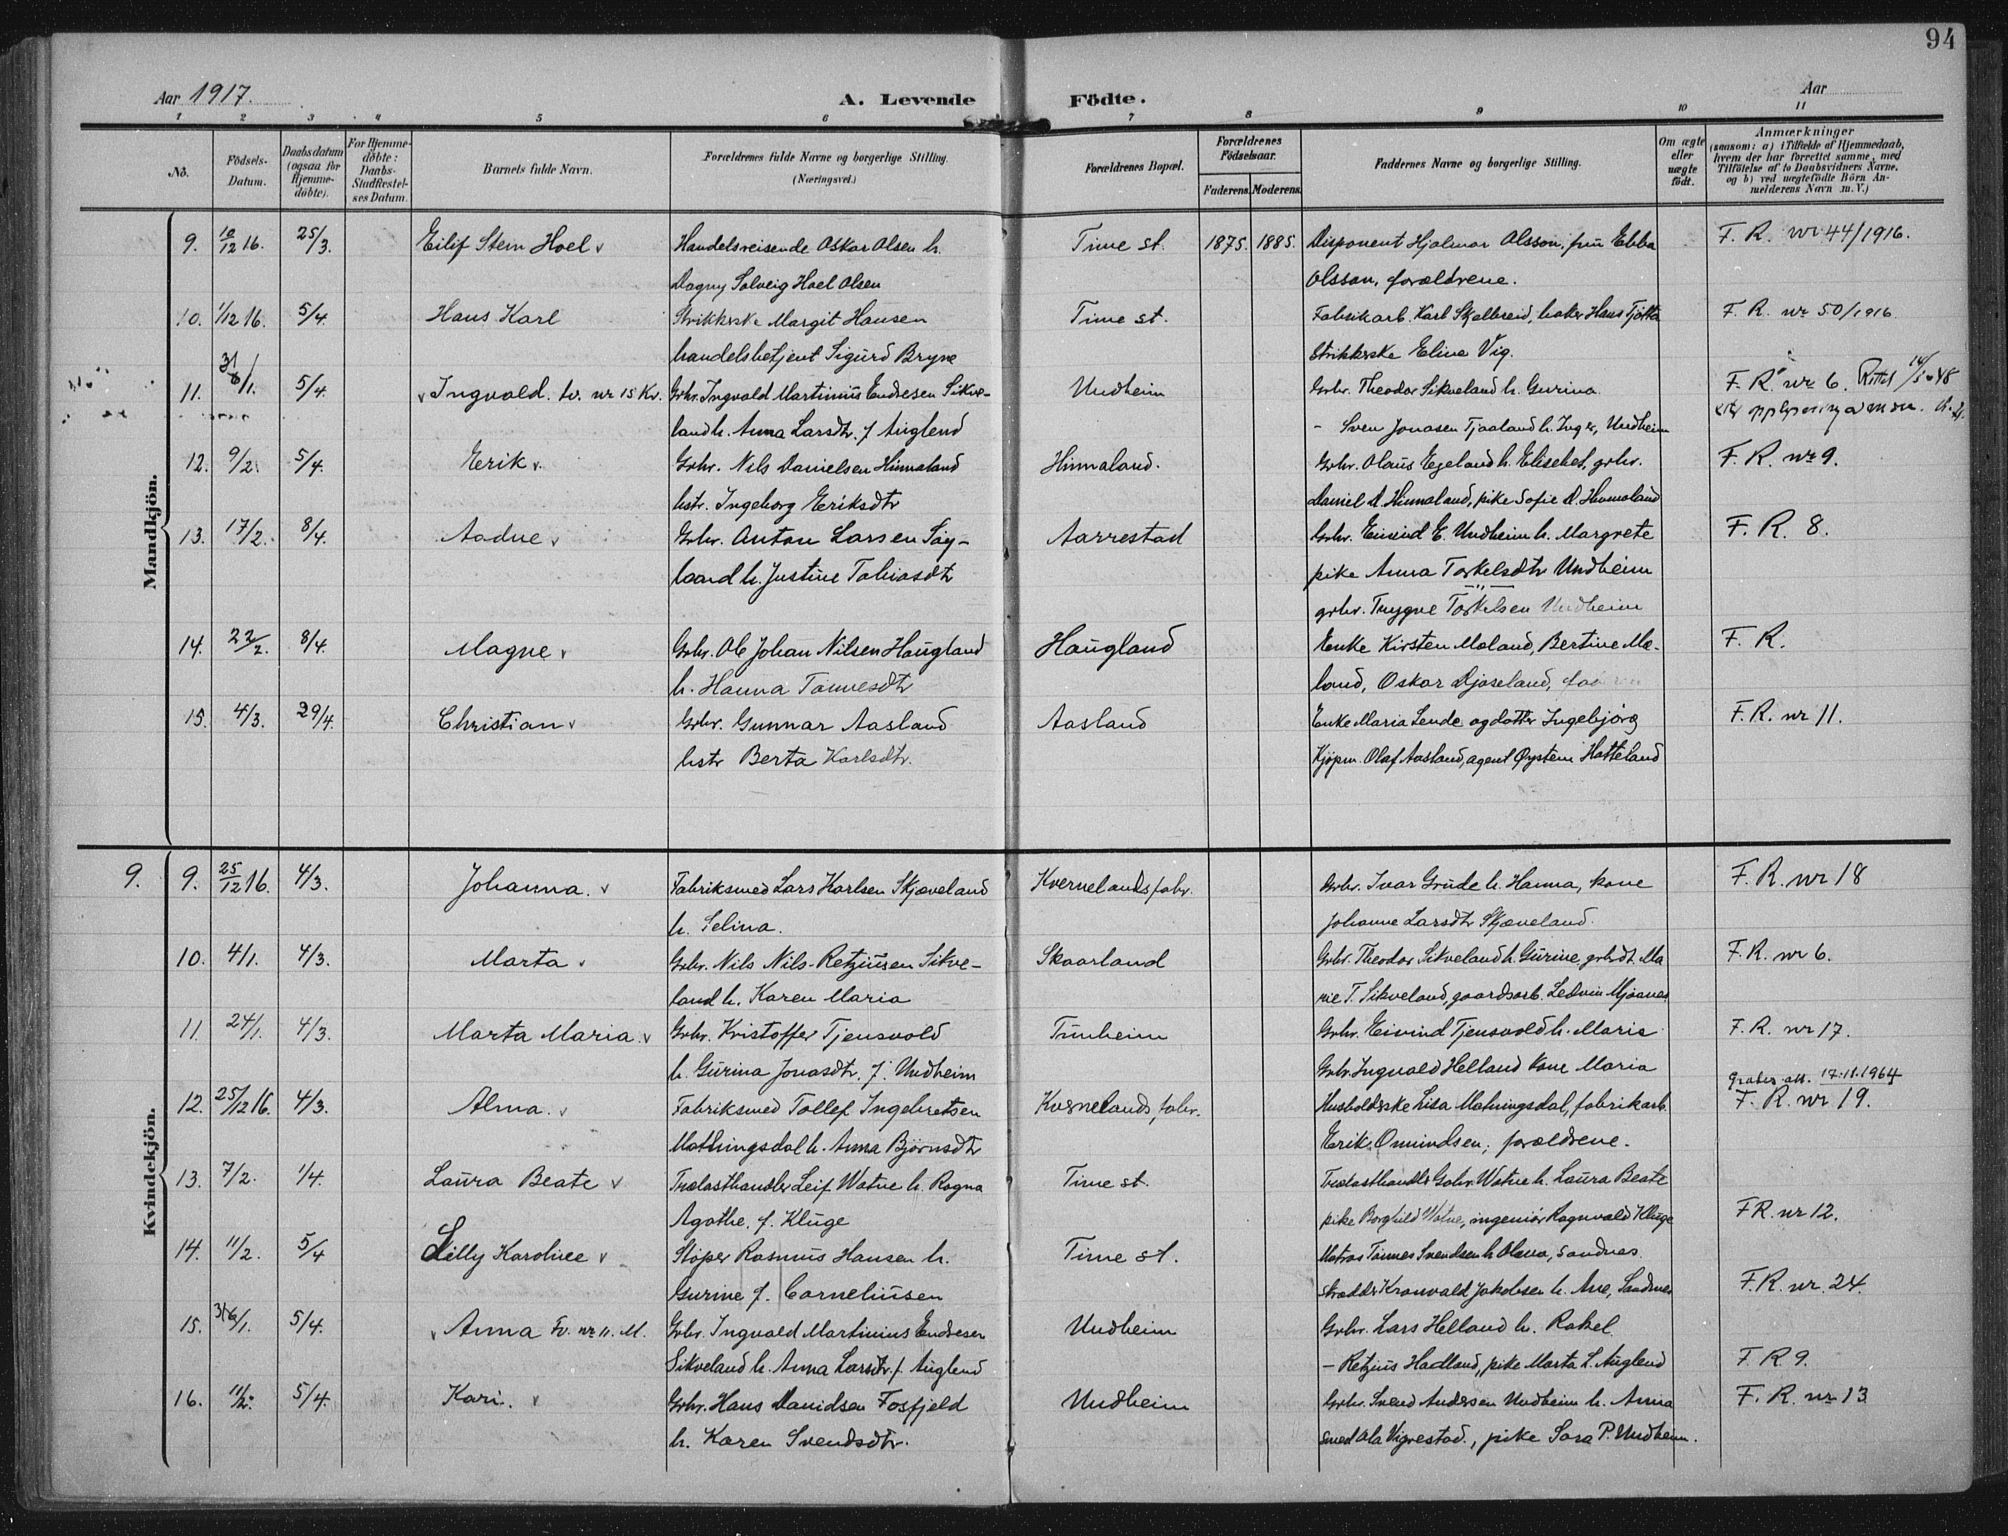 94
Aar 1917.
A. Levende Födte.
Aar
1 2 3 4 5 6 7 8 9 10 11
No.
Födsels-Datum.
Daabsdatum (ogsaa for Hjemme-döbte).
For Hjemme-döbte: Daabs-Stadfæstel-ses Datum.
Barnets fulde Navn.
Forældrenes fulde Navne og borgerlige Stilling. (Næringsvei.)
Forældrenes Bopæl.
Forældrenes Födselsaar.
Faderens. Moderens.
Faddernes Navne og borgerlige Stilling.
Om ægte eller uægte født.
Anmærkninger
(saasom: a) i Tilfælde af Hjemmedaab, hvem der har forrettet samme, med Tilföielse af to Daabsvidners Navne, og b) ved uægtefödte Börn An-melderens Navn m. V.)
Mandkjön.
9. 10/12 16. 25/3. Eilif Stem Hoel Handelsreisende Oskar Olsen h. Time st. 1875. 1885. Disponent Hjalmar Olsson, fru Ebba F. R. nr 44/1916.
Dagny Solveig Hoel Olsen Olsson, forældrene.
10. 1/12 16. 5/4. Hans Karl Strikkerske Margit Hansen Time st. Fabrikarb. Karl Skjelbreid, baker Hans Tjötta F. R. nr 50/1916
handelsbetjent Sigurd Bryne Strikkerske Eline Vig.
11. 31/1. 5/4. Ingvald. tv. nr 15 Kv. Grbr. Ingvald Martinius Endresen Sikve- Undheim Grbr. Theodor Sikveland h. Gurina F. R. nr 6. Rettet 14/5 48
land h. Anna Larsdtr. f. Auglend - Sven Jonasen Tjaaland h. Inger, Undheim
12. 9/2. 5/4. Erik Grbr. Nils Danielsen Hinnaland Hinnaland. Grbr. Olaus Egeland h. Elisebet, grbr. F. R. nr 9.
hstr. Ingeborg Eriksdtr Daniel D. Hinnaland, pike Sofie D. Hinnaland
13. 17/2. 8/4. Aadne Grbr. Anton Larsen Søy- Aarrestad Grbr. Eivind E. Undheim h. Margrete F. R. 8.
land h. Justine Tobiasdtr pike Anna Torkelsdtr Undheim
grbr. Trygve Torkelsen Undheim
14. 22/2. 8/4. Magne Grbr. Ole Johan Nilsen Haugland Haugland Enke Kirsten Møland, Bertine Mæ- F. R.
h. Hanna Tønnesdtr land, Oskar Djøseland,
15. 4/3. 29/4. Christian Grbr. Gunnar Aasland Aasland Enke Maria Lende og datter Ingebjörg F. R. nr 11.
hstr Berta Karlsdtr. Kjøpm. Olaf Aasland, agent Øystein Hatteland
Kvindekjön.
9. 9. 25/12 16. 4/3. Johanna. Fabriksmed Lars Karlsen Skjæveland Kvernelands fabr. Grbr. Ivar Grude h. Hanna, kone F. R. nr 18
h. Selina. Johanne Larsdtr Skjæveland.
10. 4/1. 4/3. Marta Grbr. Nils Nils-Retziusen Sikve- Skaarland Grbr. Theodor Sikveland h. Gurine, grbrdt. Ma F. R. nr 6.
land h. Karen Maria rie T. Sikveland, gaardsarb. Ledvin Mjaanes
11. 24/1. 4/3. Marta Maria Grbr. Kristoffer Tjensvold Tunheim Grbr. Eivind Tjensvold h. Maria F. R. nr 17.
h. Gurina Jonasdtr. f. Undheim Grbr. Ingvald Helland kone Maria
12. 25/12 16. 4/3. Alma. Fabriksmed Tollef Ingebretsen Kvernelands fabr. Husholderske Lisa Mathingsdal, fabrikarb. att. 17.11.1964 F. R. nr 19.
Mathingsdal h. Anna Bjørnsdtr Erik Omundsen, forældrene.
13. 7/2. 1/4. Laura Beate Trælasthandler Leif Watne h. Ragna Time st. Trælasthandler Gabr. Watne h. Laura Beate
Agathe. f. Kluge pike Borghild Watne, ingeniør Ragnvald Kluge FR. nr 12.
14. 11/2. 5/4 Lilly Karoline Støper Rasmus Hansen h. Time st. Matros Tønnes Svendsen h. Olava, Sandnes
Gurine f. Corneliusen skrædder Kronvald Jakobsen h. Ane, Sandnes F. R. nr. 24.
15. 31/1. 5/4. Anna Tv. nr 11. M. Grbr. Ingvald Martinius Endresen Undheim Grbr. Lars Helland h. Rakel
Sikveland h. Anna Larsdtr. f. Auglend - Retzius Hadland, pike Marta L. Auglend F. R 9.
16. 11/2. 5/4. Kari. Grbr. Hans Danielsen Fosfjeld Undheim Grbr. Svend Andersen Undheim h. Anna F. R. nr 13
h. Karen Svendsdtr. smed Ola Vigrestad., pike Sara P. Undheim.